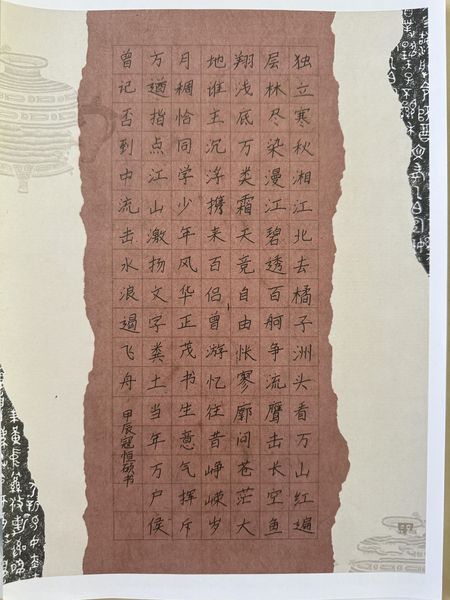 独立寒秋湘江北去橘子洲头看万山红遍
层林尽染漫江碧透百舸争流鹰击长空鱼
翔浅底万类霜天竞自由怅寥廓问苍茫大
地谁主沉浮携来百侣曾游忆往昔峥嵘岁
月稠恰同学少年风华正茂书生意气挥斥
方遒指点江山激扬文字粪土当年万户侯
曾记否到中流击水浪遏飞舟 甲辰寇恒硕书